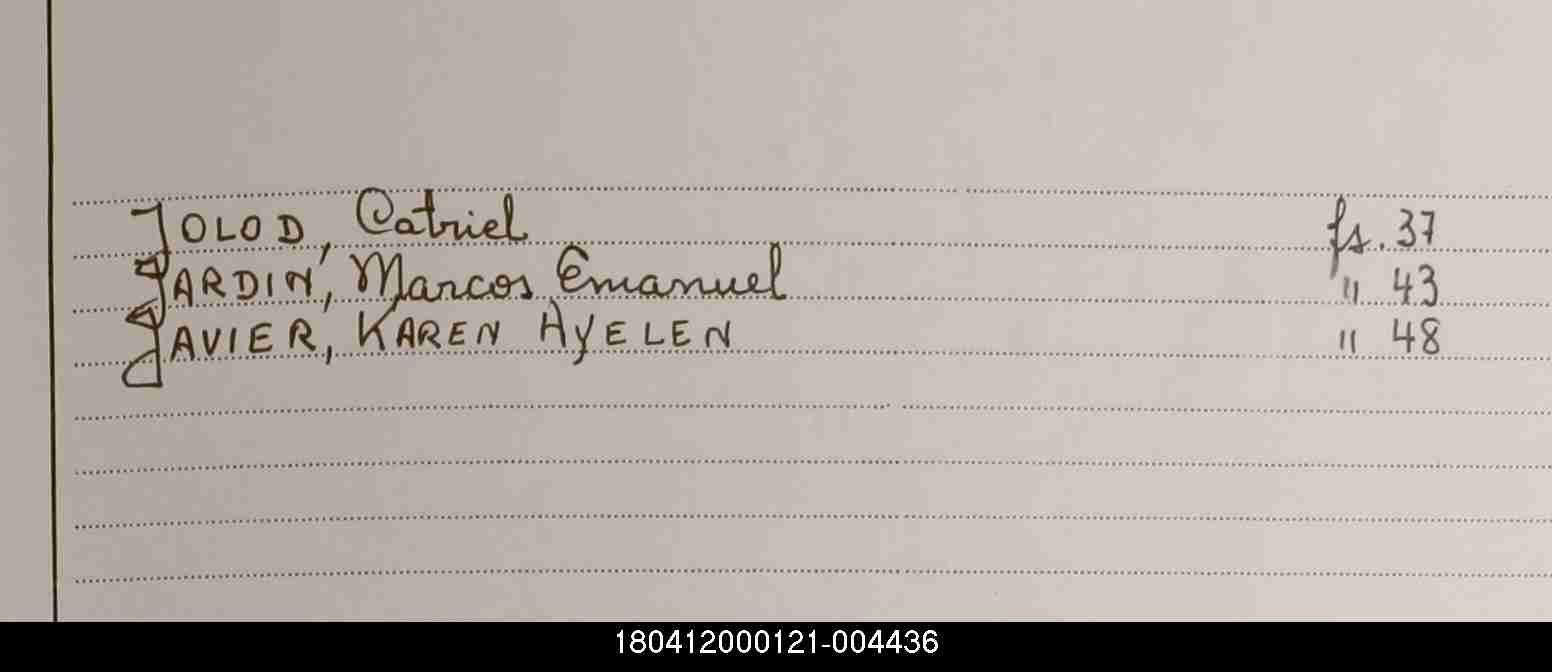 JOLOD, Catriel fs. 37
JARDIN, Marcos Emanuel " 43
JAVIER, KAREN AYELEN " 48
180412000121-004436